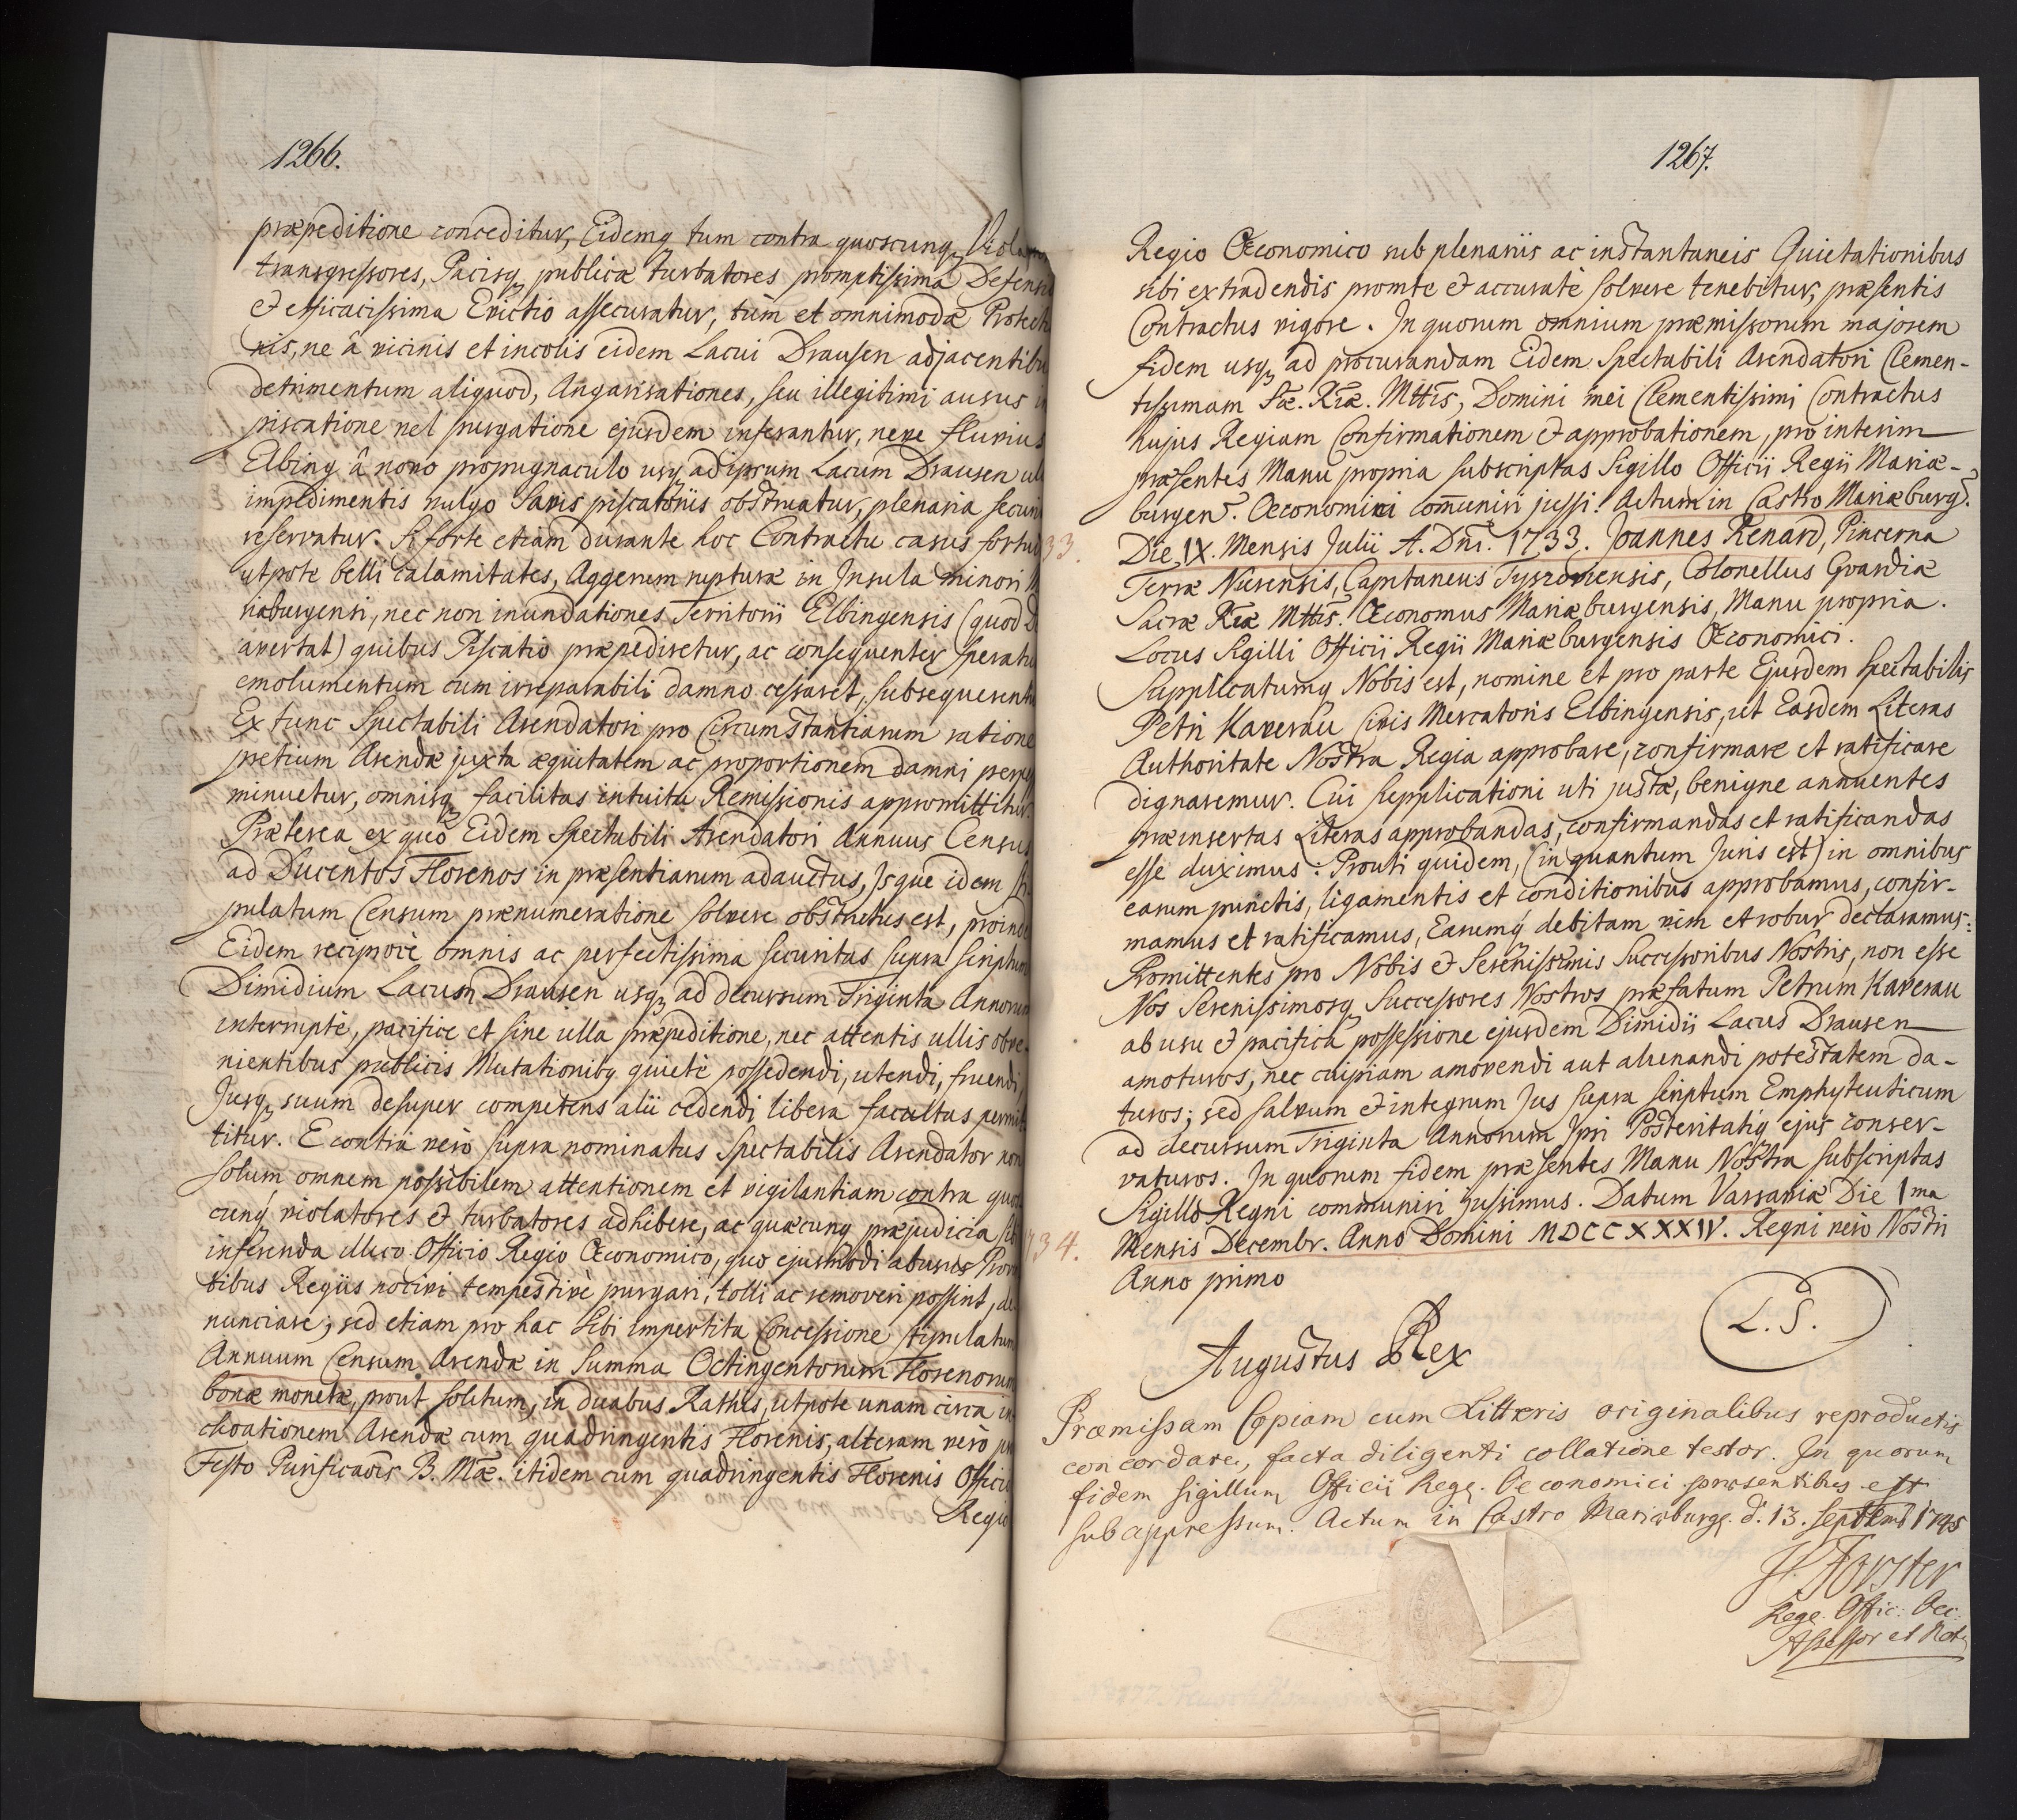 1266.
præpeditione conceditur, Eidemq tum contra quoscunq
transgressores, Pacisq publicæ turbatores promptissima Defensio
& efficacissima Evictio assecuratur, tùm et omnimodæ
ne â vicinis et incolis eidem Lacui Drausen adjacentibu
detrimentum aliquod, Angarisationes, seu illegitimi ausus in
piscatione vel purgatione ejusdem inferantur, neve fluvius
Elbing â novo propugnaculo usq ad ipsum Lacum Drausen
impedimentis vulgo Savis piscatoriis obstruatur, plenaria
reservatur. Si forte etiam durante hoc Contractu casus
utpote belli calamitates, Aggerum rupturæ in Insula minori
riaburgensi, nec non inundationes Territorii Elbingensis (quod D
avertat) quibus Piscatio præpediretur, ac consequenter
emolumentum cum irreparabili damno cessaret, subsequerent
Ex tunc Spectabili Arendatori pro Circumstantiarum ratione
pretium Arendæ juxta æquitatem ac proportionem damni
minuetur, omnisq facilitas intuitu Remissionis appromittitur.
Præterea ex quo Eidem Spectabili Arendatori Annuus Census
ad Ducentos Florenos in præsentiarum adauctus, Isque idem sti
pulatum Censum prænumeratione solvere obstrictus est, proinde
Eidem reciprocè omnis ac perfectissima securitas supra scriptum
Dimidium Lacum Drausen usq ad decursum Triginta Annorum
interruptè, pacifice et sine ulla præpeditione, nec attentis ullis obve-
nientibus publicis Mutationibq quietè possedendi, utendi, fruendi,
Jusq suum desuper competens alii cedendi libera facultas permit
titur. E contra vero supra nominatus Spectabilis Arendator non
solum omnem possibilem attentionem et vigilantiam contra quos
cunq violatores & turbatores adhibere, ac quæcunq præjudicia sibi
inferenda illico Officio Regio Œconomico, quo ejusmodi abusus Prov
tibus Regiis nocivi tempestivè purgari, tolli ac removeri possint, de
nunciare, sed etiam pro hac sibi impertita Concessione stipulatum
Annuum Censum Arendæ in Summa Octingentorum Florenorum
bonæ monetæ, prout solitum, in duabus Rathis, utpote unam circa in
choationem Arendæ cum quadringentis Florenis, alteram verò pro
Festo Purificaōis B. Mæ. itidem cum quadringentis Florenis Officio
Regio
1267.
Regio Œconomico sub plenariis ac instantaneis Quietationibus
sibi extradendis promte & accuratè solvere tenebitur, præsentis
Contractus vigore. In quorum omnium præmissorum majorem
fidem usq ad procurandam Eidem Spectabili Arendatori Clemen-
tissimam Sæ. Ræ. Mttis, Domini mei Clementissimi Contractus
hujus Regiam Confirmationem & approbationem, pro interim
præsentes Manu propria subscriptas Sigillo Officii Regii Mariæ-
burgen. Œconomici com̄uniri jussi. Actum in Castro Mariæburg.
33. Die IX. Mensis Julii A. Dni. 1733. Joannes Renard, Pincerna
Terræ Nurensis, Capitaneus Tyszoviensis, Colonellus Gvardiæ
Sacræ Ræ Mttis. Œconomus Mariæburgensis, Manu propria.
Locus Sigilli Officii Regii Mariæburgensis Œconomici.
Supplicatumq Nobis est, nomine et pro parte Ejusdem Spectabilis
Petri Kaverau Civis Mercatoris Elbingensis, ut Easdem Literas
Authoritate Nostra Regia approbare, confirmare et ratificare
dignaremur. Cui Supplicationi uti justæ, benigne annuentes
præinsertas Literas approbandas, confirmandas et ratificandas
esse duximus: Prouti quidem, (in quantum Juris est) in omnibus
earum punctis, ligamentis et conditionibus approbamus, confir-
mamus et ratificamus, Earumq debitam vim et robur declaramus:
Promittentes pro Nobis & Serenissimis Successoribus Nostris, non esse
Nos Serenissimosq Successores Nostros præfatum Petrum Kaverau
ab usu & pacifica possessione ejusdem Dimidii Lacus Drausen
amoturos, nec cuipiam amovendi aut alienandi potestatem da-
turos; sed salvum & integrum Jus supra scriptum Emphyteuticum
ad decursum Triginta Annorum Ipsi Posteritatiq ejus conser-
vaturos. In quorum fidem præsentes Manu Nostra subscriptas
Sigillo Regni communiri jussimus. Datum Varsaviæ Die 1ma
734. Mensis Decembr. Anno Domini MDCCXXXIV. Regni vero Nostri
Anno primo
Augustus Rex
L.S.
Præmissam Copiam cum Litteris originalibus reproductis
concordare, facta diligenti collatione testor. In quorum
fidem Sigillum Officii Rege. Oeconomici præsentibus est
subappressum. Actum in Castro Mariæburg. d. 13. Septemb 1745
Forster
Rege. Offic: Oec:
Assessor et Not